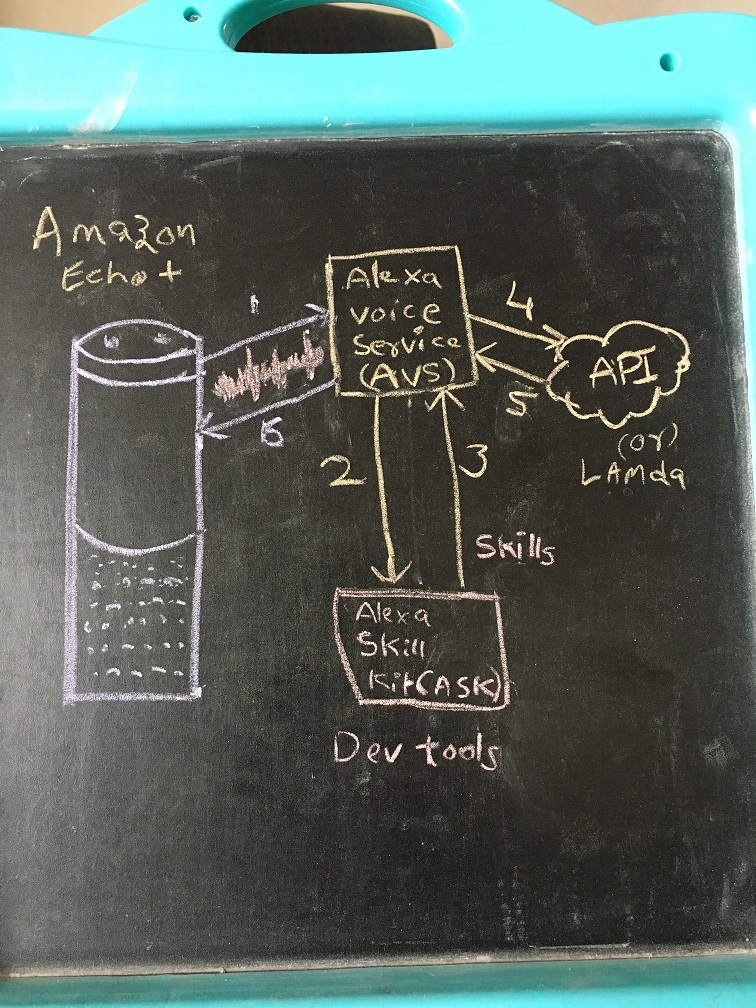 Amazon
Echo +
1
6
Alexa
Voice
Service
(AVS)
4
5
API
(or)
LAMda
2
3
Skills
Alexa
Skill
Kit(ASK)
Dev tools